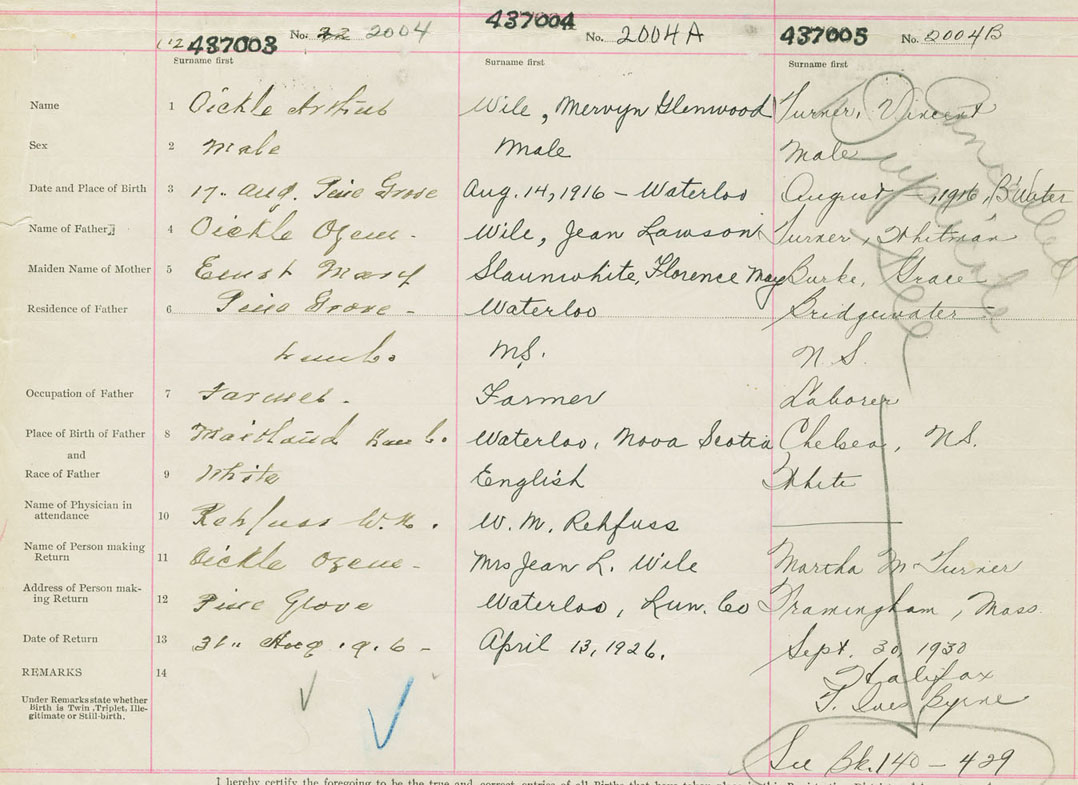 437003 No. 2004 437004 No. 2004A 437005 No. 2004B
Surname first Surname first Surname first
Name 1 Oickle Arthur Wile, Mervyn Glenwood Turner, Vincent
Sex 2 Male Male Male
Date and Place of Birth 3 17" Aug. Pine Grove Aug. 14, 1916 – Waterloo August –, 1916, B'Water
Name of Father 4 Oickle Wile, Jean Lawson Turner, Whitman
Maiden Name of Mother 5 Ernst Mary Slaunwhite, Florence May Burke, Grace
Residence of Father 6 Pine Grove - Waterloo Bridgewater
Lun Co. N.S. N.S.
Occupation of Father 7 Farmer - Farmer Laborer
Place of Birth of Father 8 Maitland Lun Co. Waterloo, Nova Scotia Chelsea, N.S.
and
Race of Father 9 White English White
Name of Physician in
attendance 10 Rehfuss W.H. W. M. Rehfuss
Name of Person making
Return 11 Oickle Mrs Jean L. Wile Martha M Turner
Address of Person mak-
ing Return 12 Pine Grove Waterloo, Lun. Co Framingham, Mass.
Date of Return 13 31" April 13, 1926. Sept. 30, 1930
REMARKS 14 Halifax
Under Remarks state whether
Birth is Twin, Triplet, Ille-
gitimate or Still-birth.
Byrne
See Bk. 140 – 429
Cancelled
Duplicate
I hereby certify the foregoing to be the true and correct entries of all Births that have taken place in the Registration District